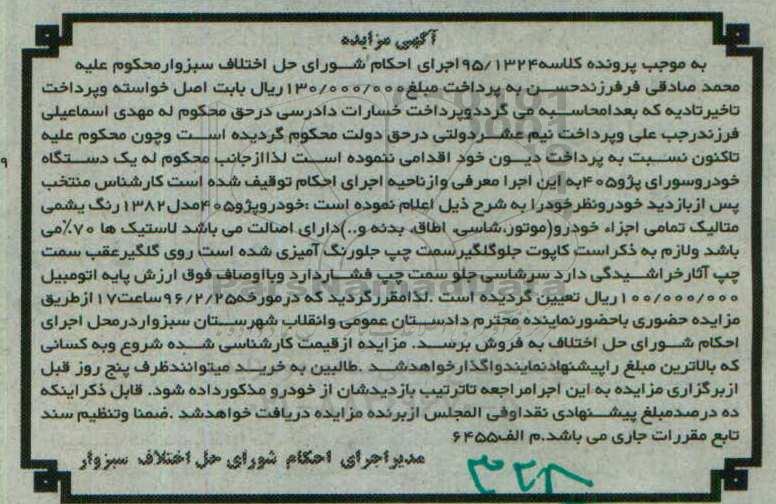 آگهی مزایده
به موجب پرونده کلاسه۹۵/۱۳۲۴اجرای احکام شورای حل اختلاف سبزوارمحکوم علیه
محمد صادقی فرفرزندحسن به پرداخت مبلغ۱۳۰/۰۰۰/۰۰۰ریال بابت اصل خواسته وپرداخت
تاخیرتادیه که بعدامحاسبه می گرددوپرداخت خسارات دادرسی درحق محکوم له مهدی اسماعیلی
فرزندرجب علی وپرداخت نیم عشردولتی درحق دولت محکوم گردیده است وچون محکوم علیه
تاکنون نسبت به پرداخت دیون خود اقدامی ننموده است لذاازجانب محکوم له یک دستگاه
خودروسورای پژو۴۰۵به این اجرا معرفی وازناحیه اجرای احکام توقیف شده است کارشناس منتخب
پس ازبازدید خودرونظرخودرا به شرح ذیل اعلام نموده است :خودروپژو۴۰۵مدل۱۳۸۲رنگ یشمی
متالیک تمامی اجزاء خودرو(موتور،شاسی، اطاق، بدنه و..)دارای اصالت می باشد لاستیک ها ۷۰٪می
باشد ولازم به ذکراست کاپوت جلوگلگیرسمت چپ جلورنگ آمیزی شده است روی گلگیرعقب سمت
چپ آثارخراشیدگی دارد سرشاسی جلو سمت چپ فشارداردوبااوصاف فوق ارزش پایه اتومبیل
۱۰۰/۰۰۰/۰۰۰ریال تعیین گردیده است .لذامقررگردید که درمورخه۹۶/۲/۲۵ساعت۱۷ازطریق
مزایده حضوری باحضورنماینده محترم دادستان عمومی وانقلاب شهرستان سبزواردرمحل اجرای
احکام شورای حل اختلاف به فروش برسد. مزایده ازقیمت کارشناسی شده شروع وبه کسانی
که بالاترین مبلغ راپیشنهادنمایندواگذارخواهدشد .طالبین به خرید میتوانندظرف پنج روز قبل
ازبرگزاری مزایده به این اجرامراجعه تاترتیب بازدیدشان از خودرو مذکورداده شود. قابل ذکراینکه
ده درصدمبلغ پیشنهادی نقداوفی المجلس ازبرنده مزایده دریافت خواهدشد .ضمنا وتنظیم سند
تابع مقررات جاری می باشد.م الف۶۴۵۵
مدیراجرای احکام شورای حل اختلاف سبزوار
۳۲۸
ParsNamadData